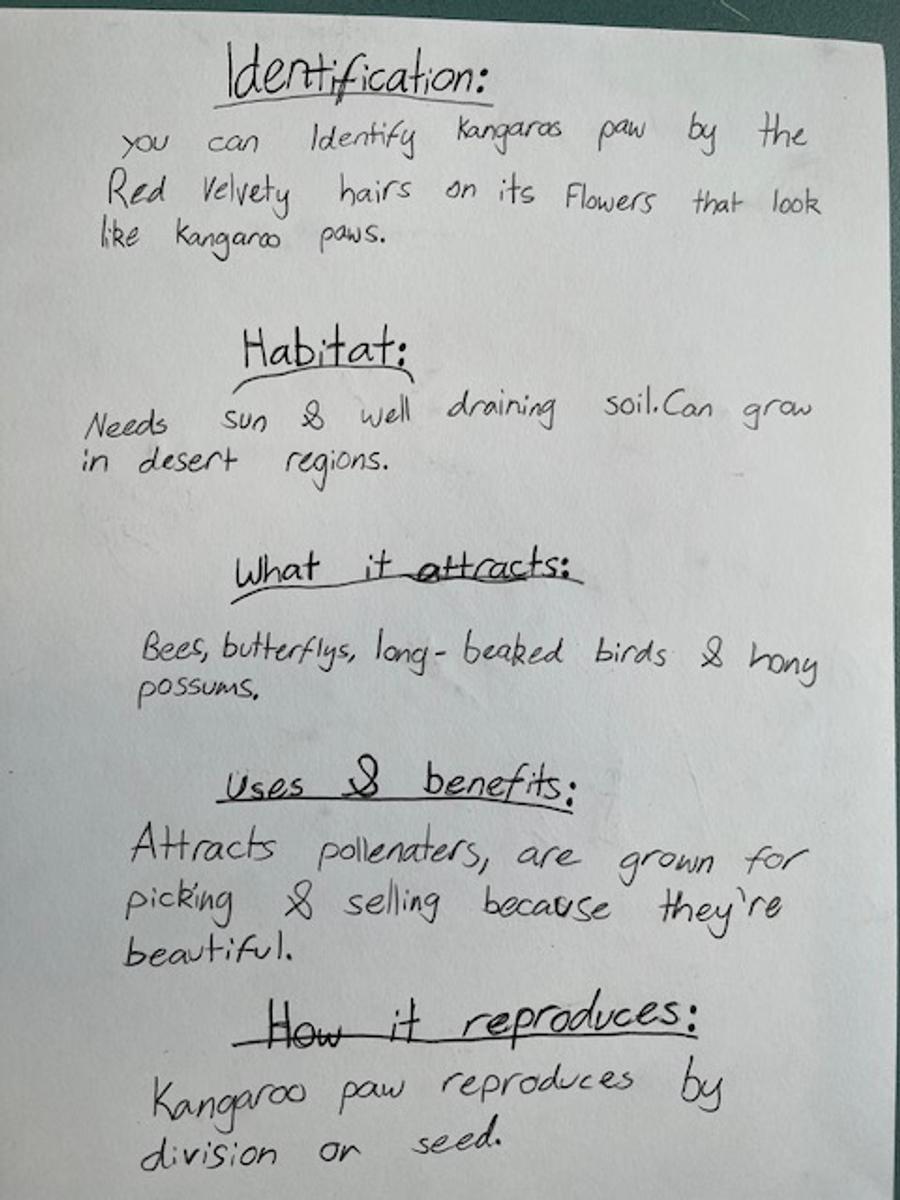 Identification:
you can Identify Kangaroo paw by the
Red Velvety hairs on its Flowers that look
like Kangaroo paws.
Habitat:
Needs sun & well draining soil. Can grow
in desert regions.
What it attracts:
Bees, butterflys, long-beaked birds & hony
possums.
Uses & benefits:
Attracts pollenaters, are grown for
picking & selling because they're
beautiful.
How it reproduces:
Kangaroo paw reproduces by
division or seed.